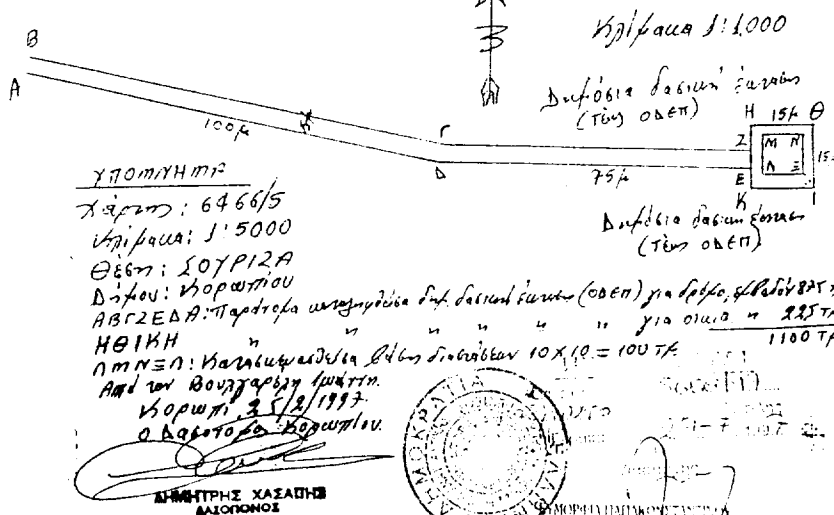 Κλίμακα 1:1000
Β
Α
100μ
Γ
Δ
75μ
Δημόσια δασική έκταση
(τέως ΟΔΕΠ)
Η 15μ Θ
Ζ Μ Ν
Ε Λ Ξ
Κ Ι
Δημόσια δασική έκταση
(τέως ΟΔΕΠ)
ΥΠΟΜΝΗΜΑ
Χάρτης: 6466/5
Κλίμακα: 1:5000
Θέση: ΣΟΥΡΙΖΑ
Δήμου: Κορωπίου
ΑΒΓΖΕΔΑ: Παράνομα καταληφθείσα δημ. δασική έκταση (ΟΔΕΠ) για δρόμο, εμβαδόν 875 τμ
ΗΘΙΚΗ " " " " " για οικία " 225 τμ
1100 τμ
ΛΜΝΞΛ: Κατασκευασθείσα βάση διαστάσεων 10 Χ 10 = 100 τμ
Από τον Βουλγαρέλη Ιωάννη.
Κορωπί 25/2/1997
Ο Δασονόμος Κορωπίου
ΔΗΜΗΤΡΗΣ ΧΑΣΑΠΗΣ
ΔΑΣΟΠΟΝΟΣ